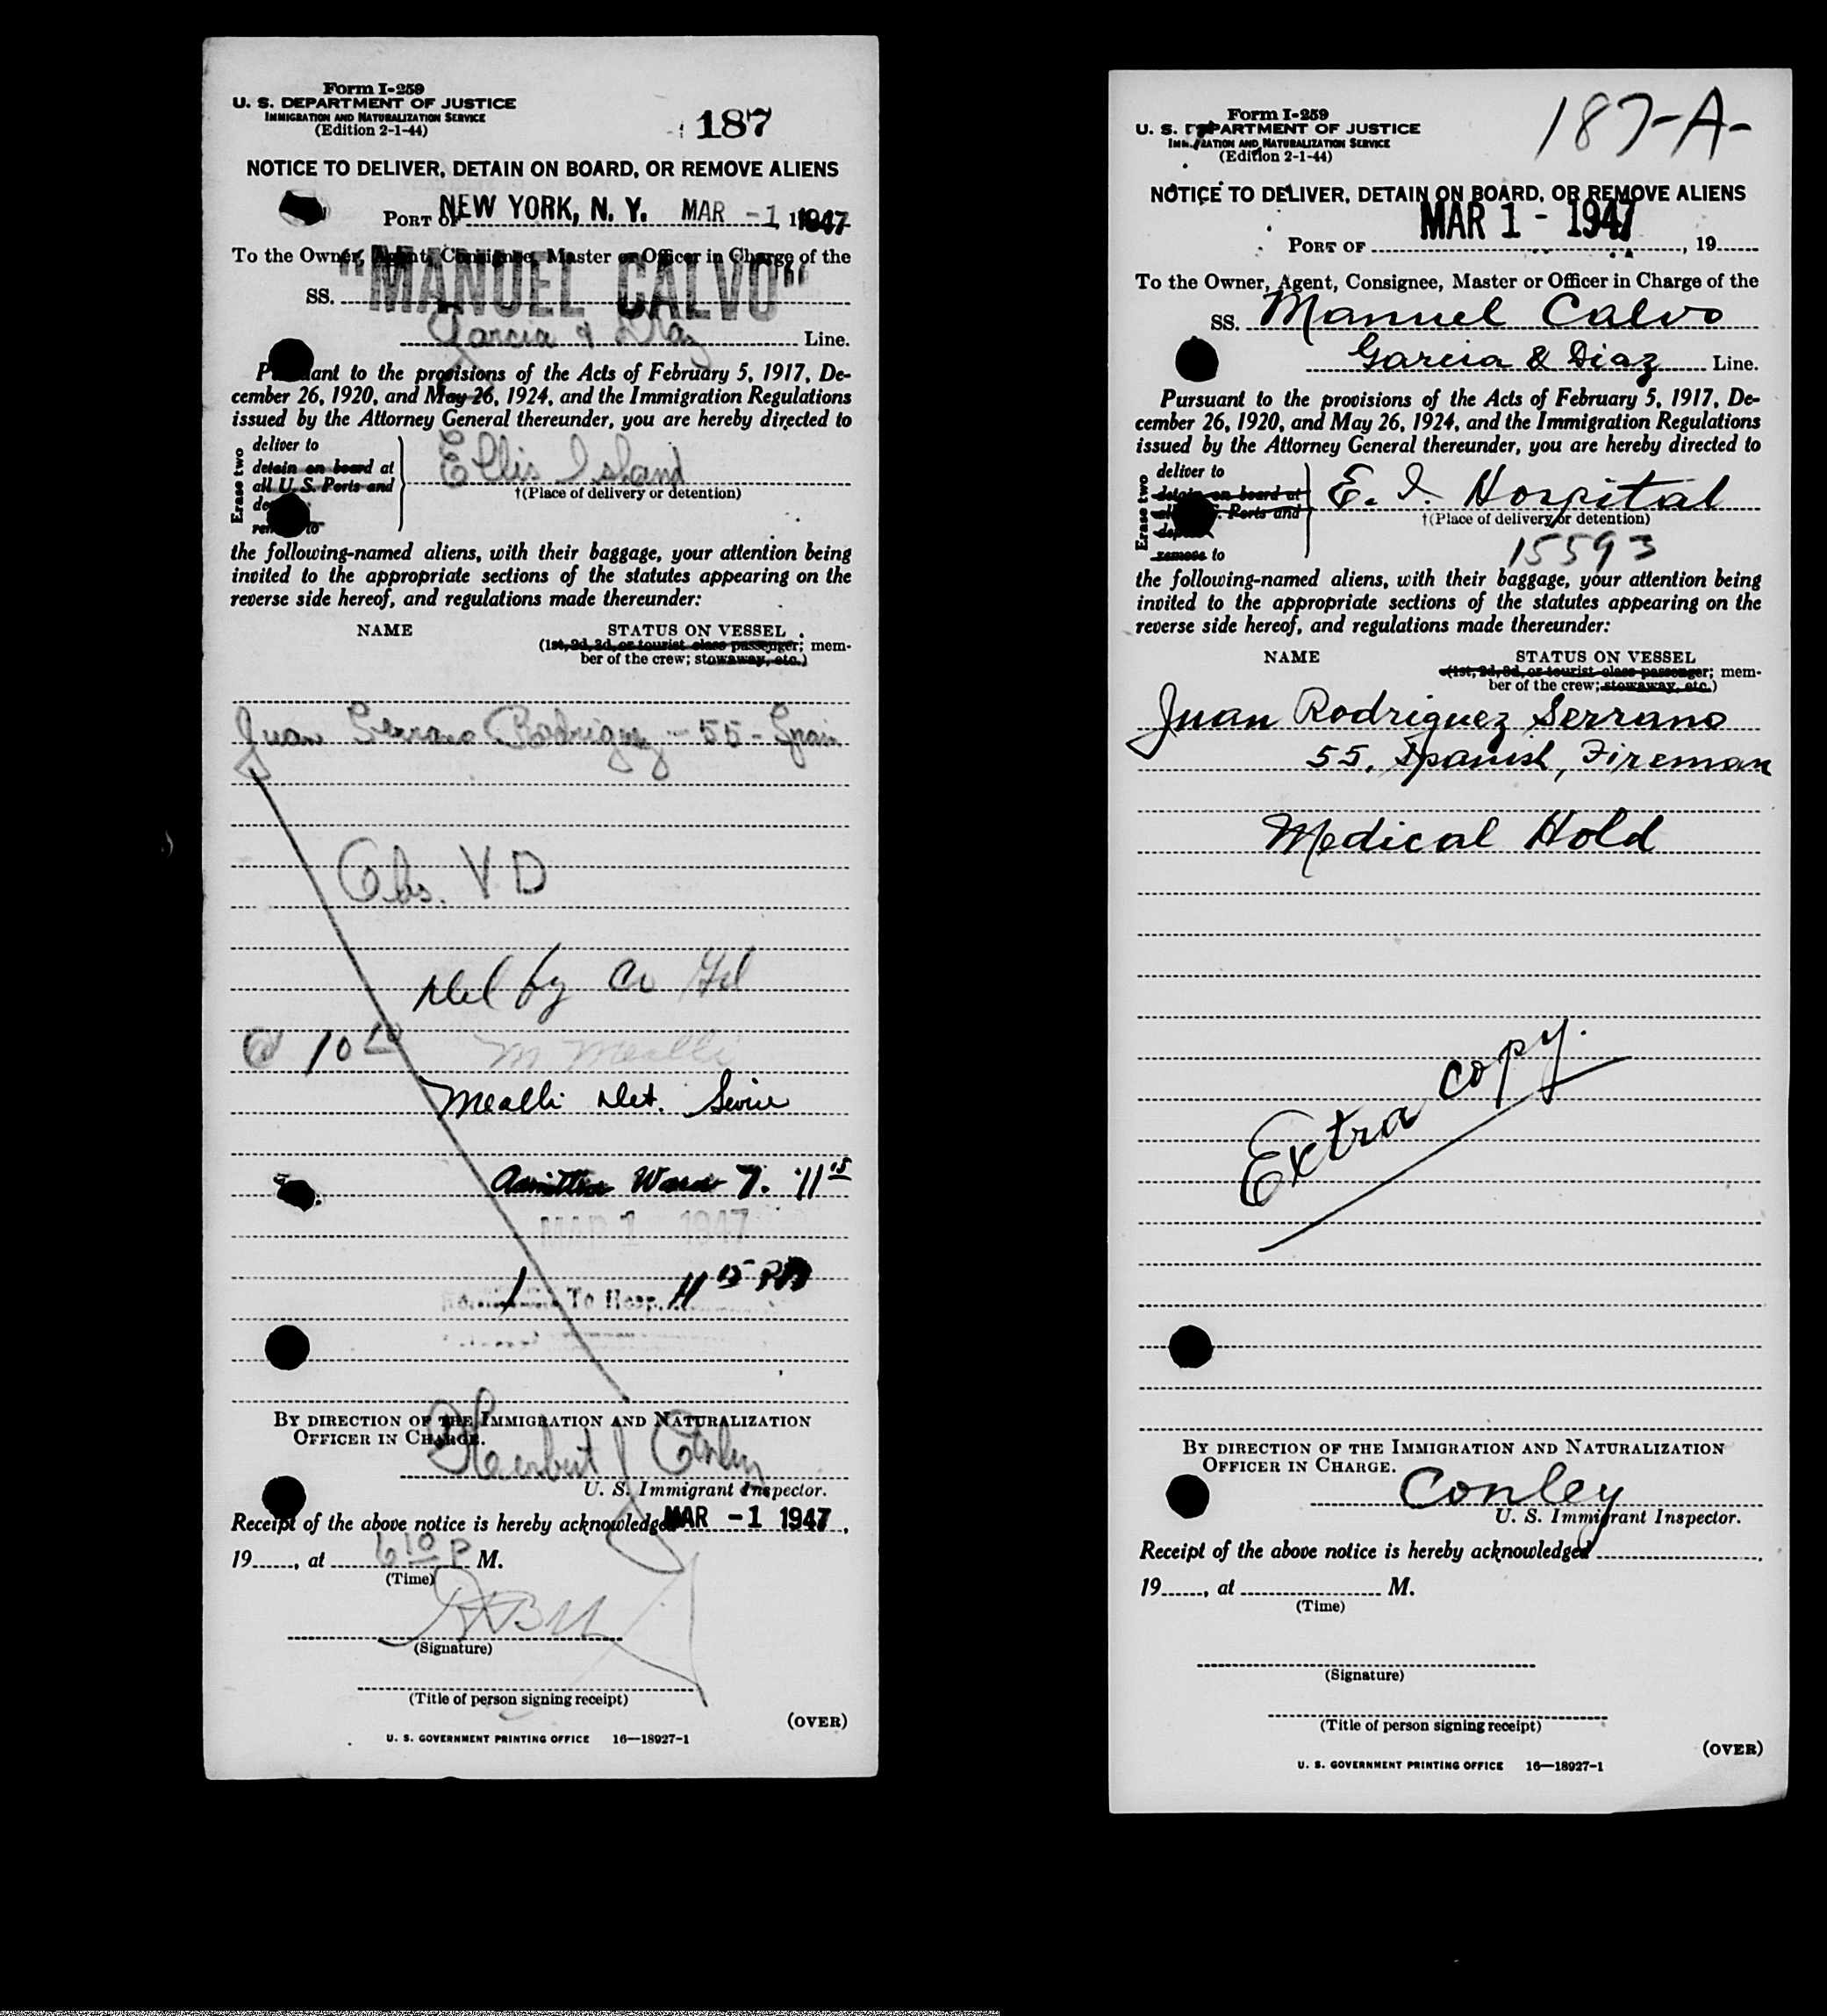 Form I-259
U. S. DEPARTMENT OF JUSTICE
IMMIGRATION AND NATURALIZATION SERVICE
(Edition 2-1-44)
187
NOTICE TO DELIVER, DETAIN ON BOARD, OR REMOVE ALIENS
PORT OF NEW YORK, N. Y. MAR -1, 1947
To the Owner, Agent, Consignee, Master or Officer in Charge of the
SS. "MANUEL CALVO"
Garcia & Diaz Line.
Pursuant to the provisions of the Acts of February 5, 1917, De-
cember 26, 1920, and May 26, 1924, and the Immigration Regulations
issued by the Attorney General thereunder, you are hereby directed to
Erase two
deliver to
detain on board at
all U. S. Ports and
Ellis Island
†(Place of delivery or detention)
the following-named aliens, with their baggage, your attention being
invited to the appropriate sections of the statutes appearing on the
reverse side hereof, and regulations made thereunder:
NAME STATUS ON VESSEL
(1st, 2d, 3d, or tourist class passenger; mem-
ber of the crew; stowaway, etc.)
Juan Serrano Rodriguez - 55 - Spain
Obs. V D
Del by
Mealli
Mealli Det.
Admitted Ward 7. 11 15
MAR 1 1947
No. 1 To Hosp. 11 15 PM
BY DIRECTION OF THE IMMIGRATION AND NATURALIZATION
OFFICER IN CHARGE.
Herbert J Conley
U. S. Immigrant Inspector.
Receipt of the above notice is hereby acknowledged MAR -1 1947,
19, at 6 10 P M.
(Time)
(Signature)
(Title of person signing receipt)
(OVER)
U. S. GOVERNMENT PRINTING OFFICE 16—18927-1
Form I-259
U. S. DEPARTMENT OF JUSTICE
IMMIGRATION AND NATURALIZATION SERVICE
(Edition 2-1-44)
187-A-
NOTICE TO DELIVER, DETAIN ON BOARD, OR REMOVE ALIENS
MAR 1 - 1947
PORT OF , 19
To the Owner, Agent, Consignee, Master or Officer in Charge of the
SS. Manuel Calvo
Garcia & Diaz Line.
Pursuant to the provisions of the Acts of February 5, 1917, De-
cember 26, 1920, and May 26, 1924, and the Immigration Regulations
issued by the Attorney General thereunder, you are hereby directed to
Erase two
deliver to
detain on board at
all U. S. Ports and
deport
remove to
E. I. Hospital
†(Place of delivery or detention)
15593
the following-named aliens, with their baggage, your attention being
invited to the appropriate sections of the statutes appearing on the
reverse side hereof, and regulations made thereunder:
NAME STATUS ON VESSEL
(1st, 2d, 3d, or tourist class passenger; mem-
ber of the crew; stowaway, etc.)
Juan Rodriguez Serrano
55, Spanish, Fireman
Medical Hold
Extra copy.
BY DIRECTION OF THE IMMIGRATION AND NATURALIZATION
OFFICER IN CHARGE.
Conley
U. S. Immigrant Inspector.
Receipt of the above notice is hereby acknowledged ,
19, at M.
(Time)
(Signature)
(Title of person signing receipt)
(OVER)
U. S. GOVERNMENT PRINTING OFFICE 16—18927-1